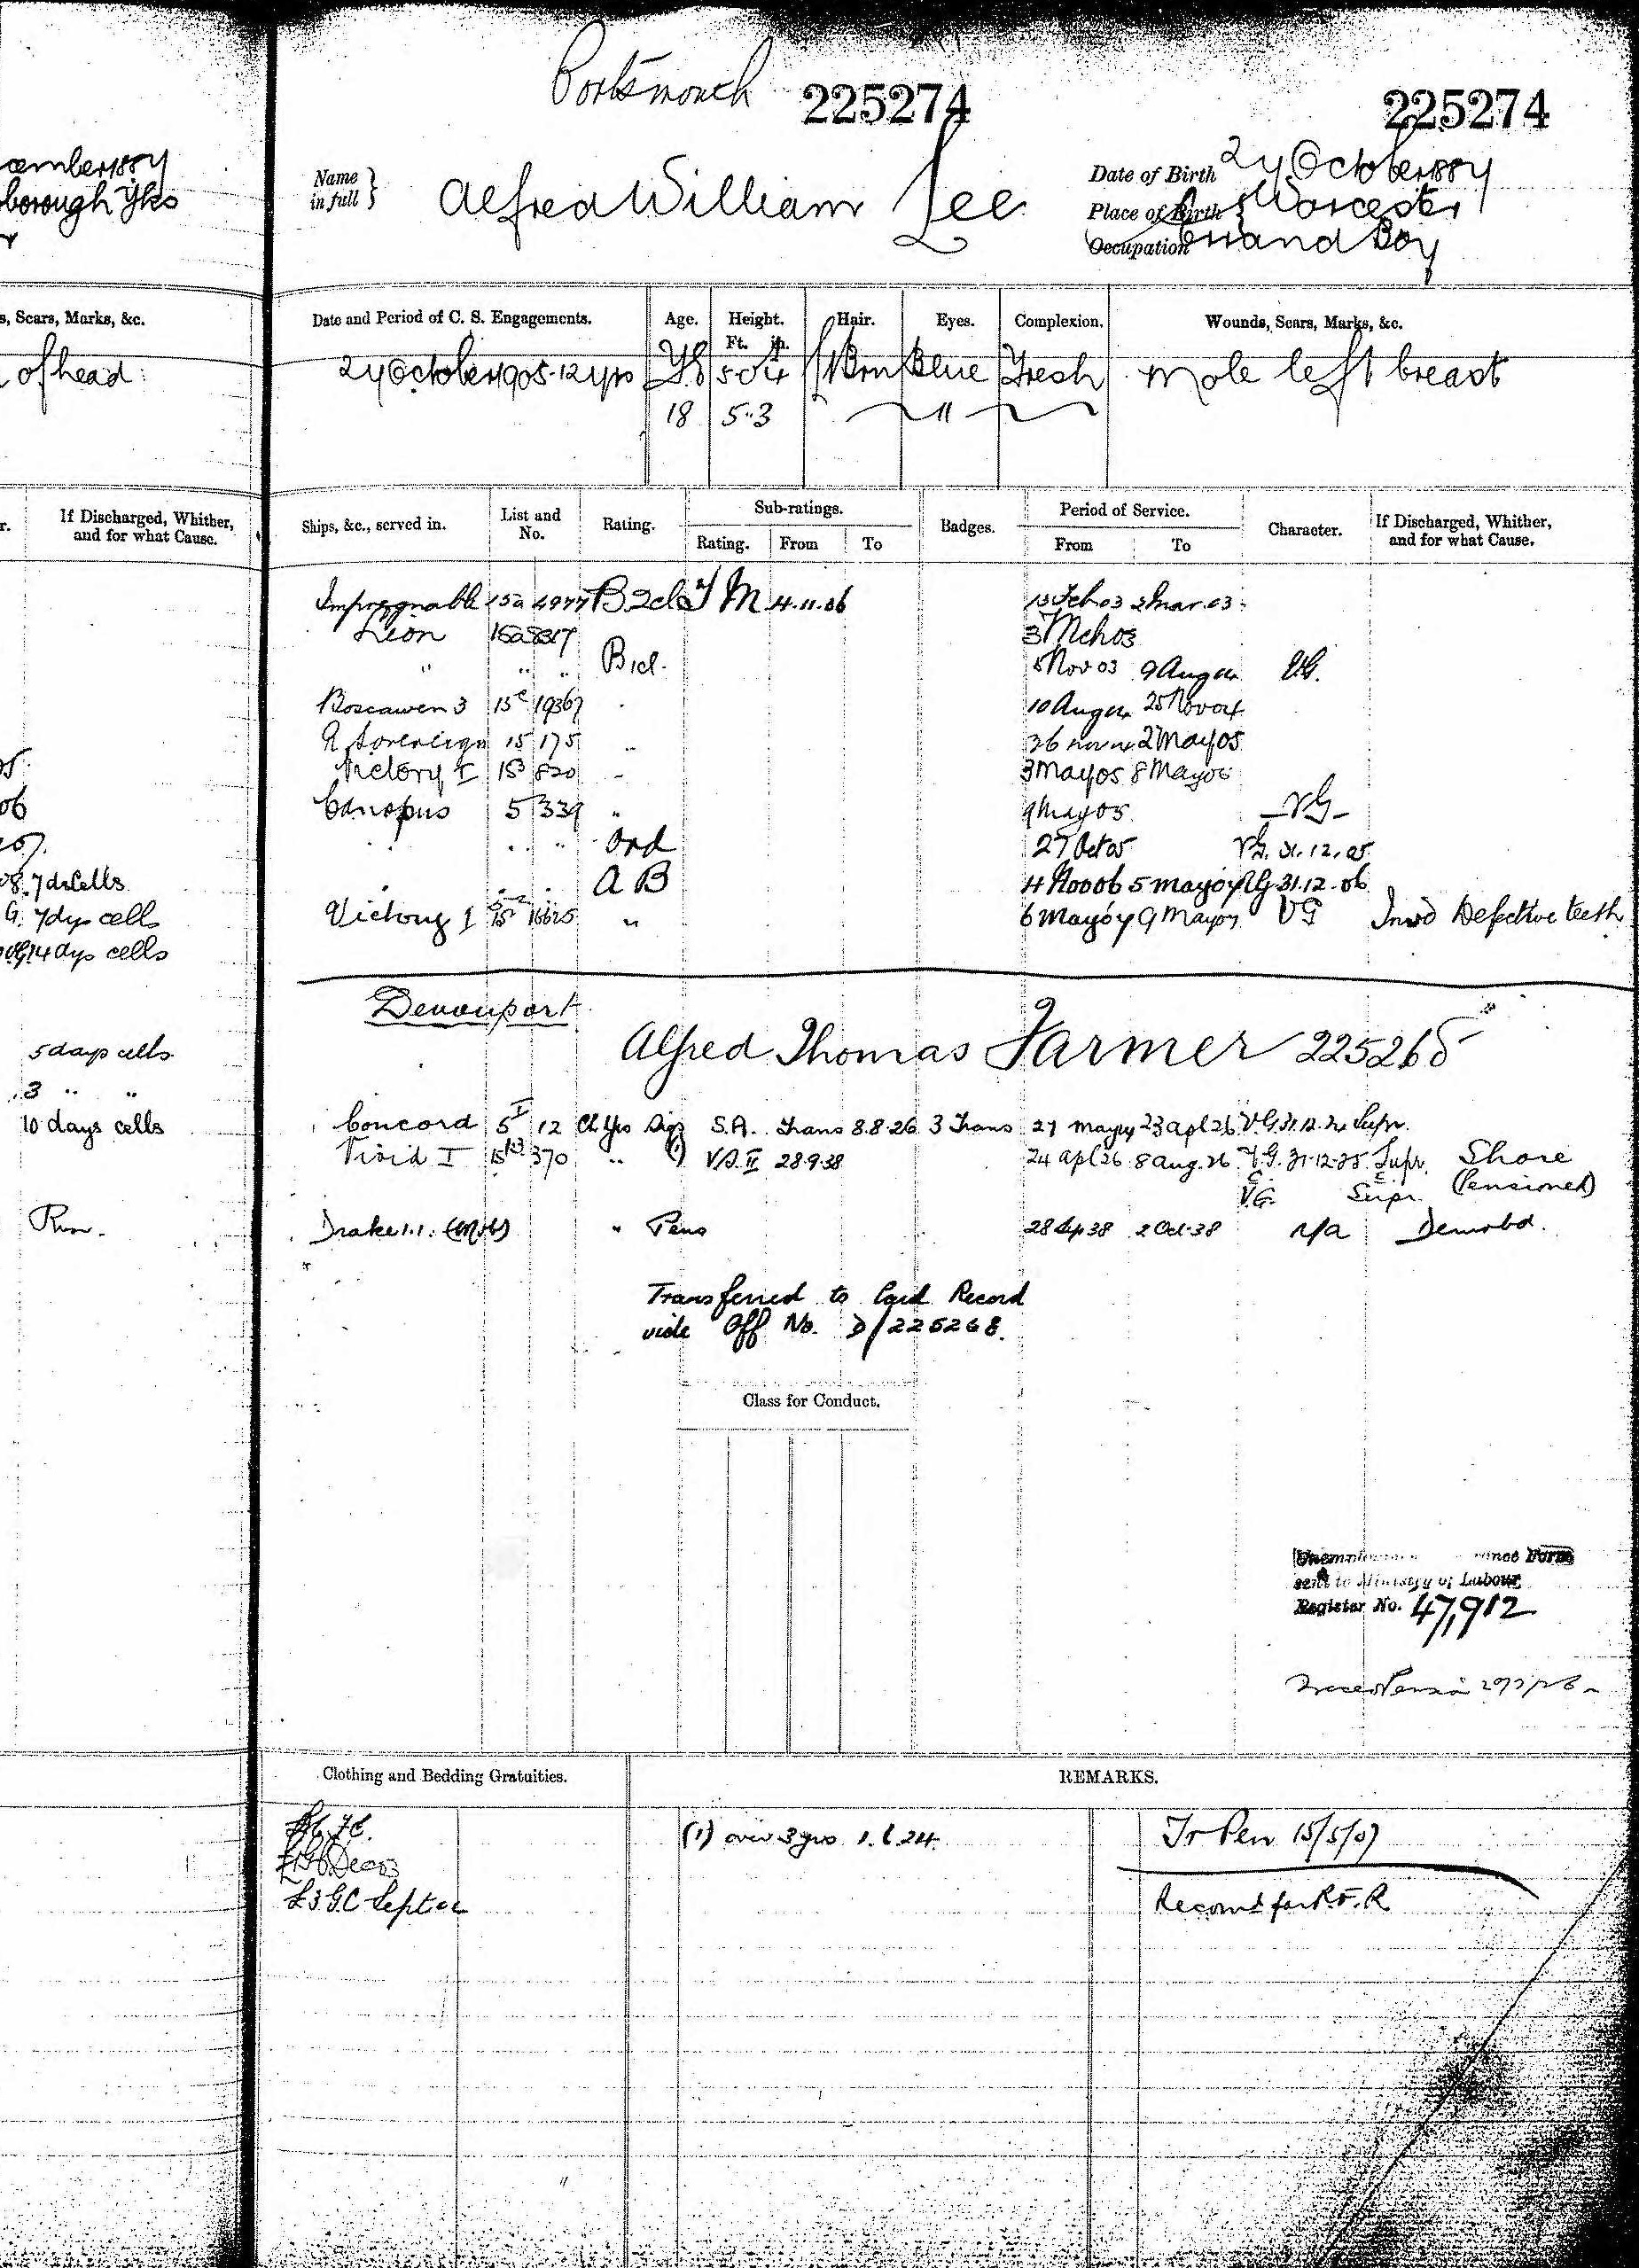 Portsmouth 225274 225274
cember 1887
borough Yks
Name in full } Alfred William Lee
Date of Birth 27 October 1887
Place of Birth } Worcester
Occupation Errand Boy
s, Scars, Marks, &c.
of head
Date and Period of C. S. Engagements. Age. Height. Ft. in. Hair. Eyes. Complexion. Wounds, Scars, Marks, &c.
27 October 1905 - 12 yrs 18 Brn Blue Fresh Mole left breast
18 5..3 "
r. If Discharged, Whither, and for what Cause.
Ships, &c., served in. List and No. Rating. Sub-ratings. Rating. From To Badges. Period of Service. From To Character. If Discharged, Whither, and for what Cause.
Impregnable 15a 4977 B 2cl T M 4.11.06 13 Feb 03 2 Mar 03
Lion 15a 8317 3 Mch 03
" .. .. B 1cl. 5 Nov 03 9 Aug 04 VG.
Boscawen 3 15c 19367 10 Aug 04 25 Nov 04
R Sovereign 15 175 .. 26 Nov 04 2 May 05
Victory I 820 3 May 05 8 May 05
Canopus 5 339 .. 9 May 05 VG
.. .. Ord 27 Oct 05 VG. 31.12.05
A B 4 Nov 06 5 May 07 VG 31.12.06
Victory I 16625 .. 6 May 07 9 May 07 VG Invd Defective teeth
06
07.
08. 7 ds Cells
G. 7 dys cells
VG 14 dys cells
5 days cells
3 .. ..
10 days cells
Run.
Devonport
Alfred Thomas Farmer 225268
Concord 5 I 12 Ch Yeo Sigs S.A. Trans 8.8.26 3 Trans 23 Apl 26 Supr.
Vivid I 370 .. (1) V.S. II 28.9.38 24 Apl 26 8 Aug. 26 V.G. 31-12-25 Supr. Shore
V.G. Supr. (Pensioned)
Drake 1.1. (Mob) " Pens 28 Sep 38 2 Oct 38 n/a Demobd.
Transferred to Card Record
vide Off No. D/225268.
Class for Conduct.
sent to Ministry of Labour
Register No. 47,912
Clothing and Bedding Gratuities. REMARKS.
(1) over 3 yrs 24. Tr Pen 15/5/07
£3 G.C Sept 06 Recomd for R.F.R